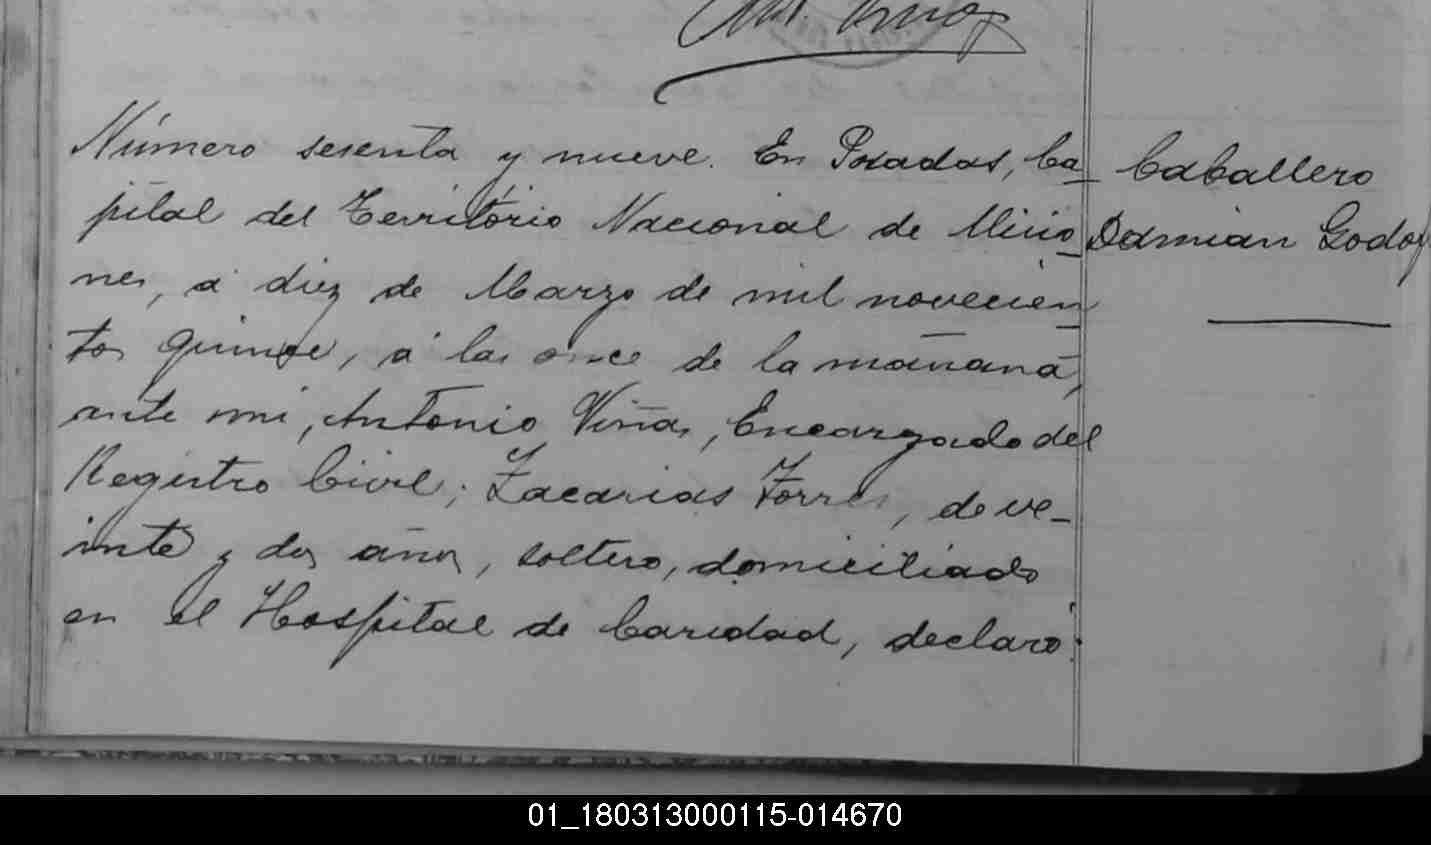 Número sesenta y nueve. En Posadas, Ca_
pital del Território Nacional de Misio_
nes, á diez de Marzo de mil novecien_
tos quince, á las once de la mañana,
ante mi, Antonio Viñas, Encargado del
Registro Civil; Zacarias Torres, de ve_
inte y dos años, soltero, domiciliado
en el Hospital de Caridad, declaró:
Caballero
Damian Godoy
01_180313000115-014670